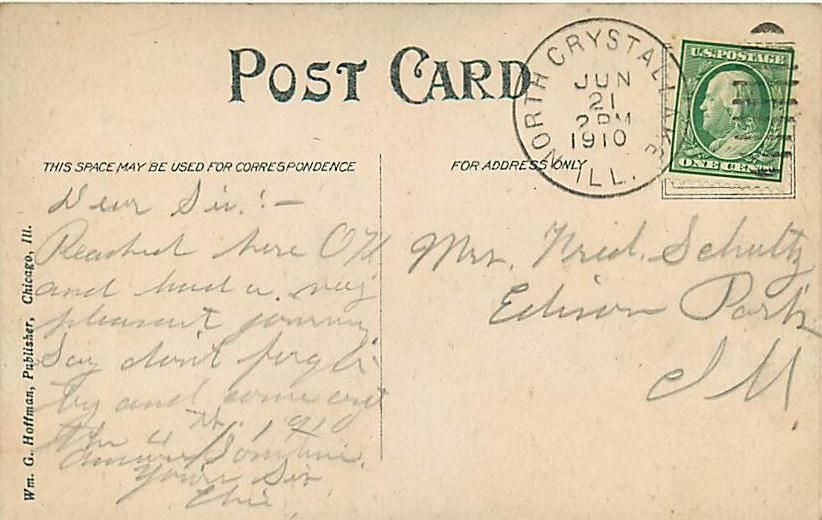 POST CARD
NORTH CRYSTAL LAKE
JUN
21
2 PM
1910
ILL.
U.S. POSTAGE
ONE CENT
THIS SPACE MAY BE USED FOR CORRESPONDENCE
FOR ADDRESS ONLY
Dear Sir:-
Reached here OK
and had a very
pleasant journey
Say don't forget
try and come out
the 4th, 1910
Sometime.
Your Sis
Mrs. Fred. Schultz
Edison Park
Ill.
Wm. G. Hoffman, Publisher, Chicago, Ill.